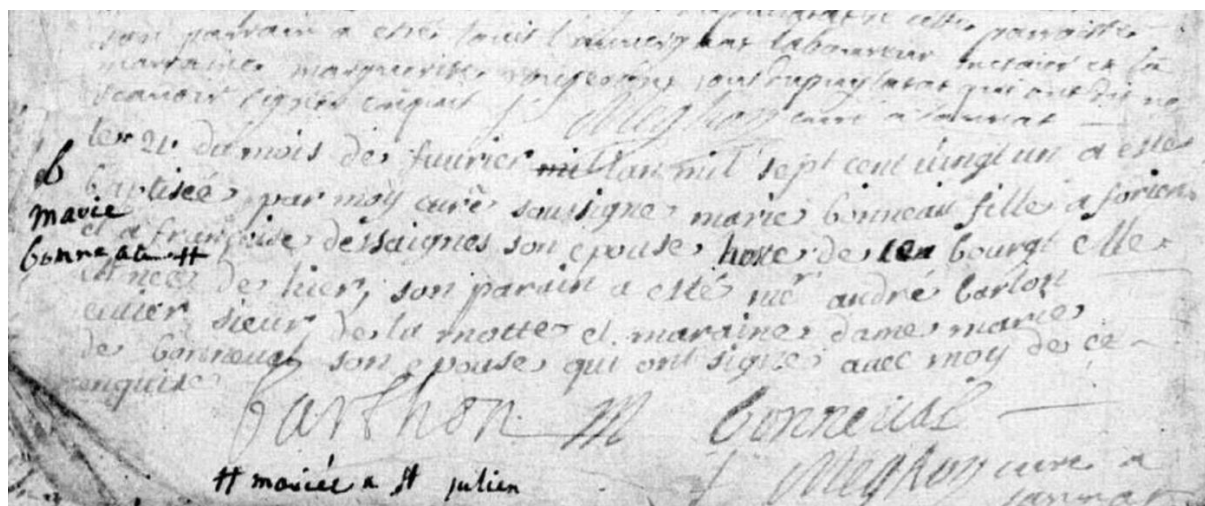 son parrain a esté louis laboureur metaier et la
marraine marguerite qui ont dit ne
scauoir signer enquis Meghon curé a
le 21 du mois de feurier mil lan mil sept cent uingt un a esté
b
baptisée par moy curé soussigne marie bonneau fille a
marie
et a françoise dessaignes son epouse hoste de ce bourgt elle
bonneau #
est née de hier, son parain a esté mr andré barton
ecuier sieur de la motte et maraine dame marie
de bonneual son epouse qui ont signé auec moy de ce
enquise
Barthon M bonneual
Meghon curé a
# mariée a st julien